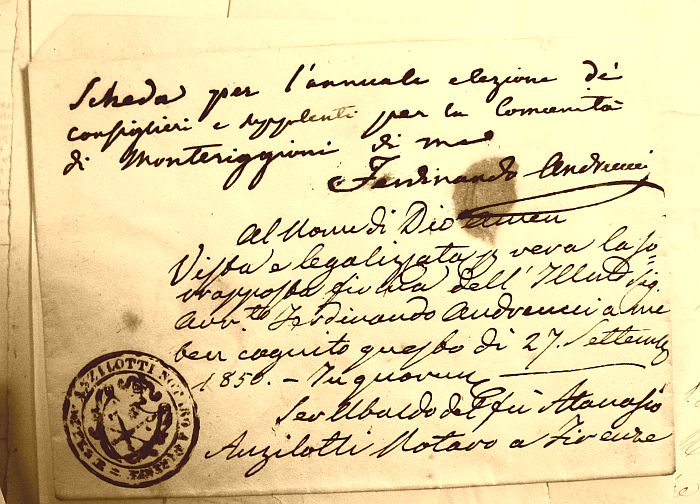 Scheda per l'annuale elezione de'
consiglieri e supplenti per la Comunità
di Monteriggioni di me
Ferdinando Andreucci
Al Nome di Dio Amen
Vista e legalizzata p vera la so=
vrapposta firma dell' Illmo Sig.
Avv.to Ferdinando Andreucci a me
ben cognito questo dì 27. Settembre
1850. – In quorum
Ser Ubaldo del fù Atanasio
Anzilotti Notaro a Firenze
ANZILOTTI NOTARO A